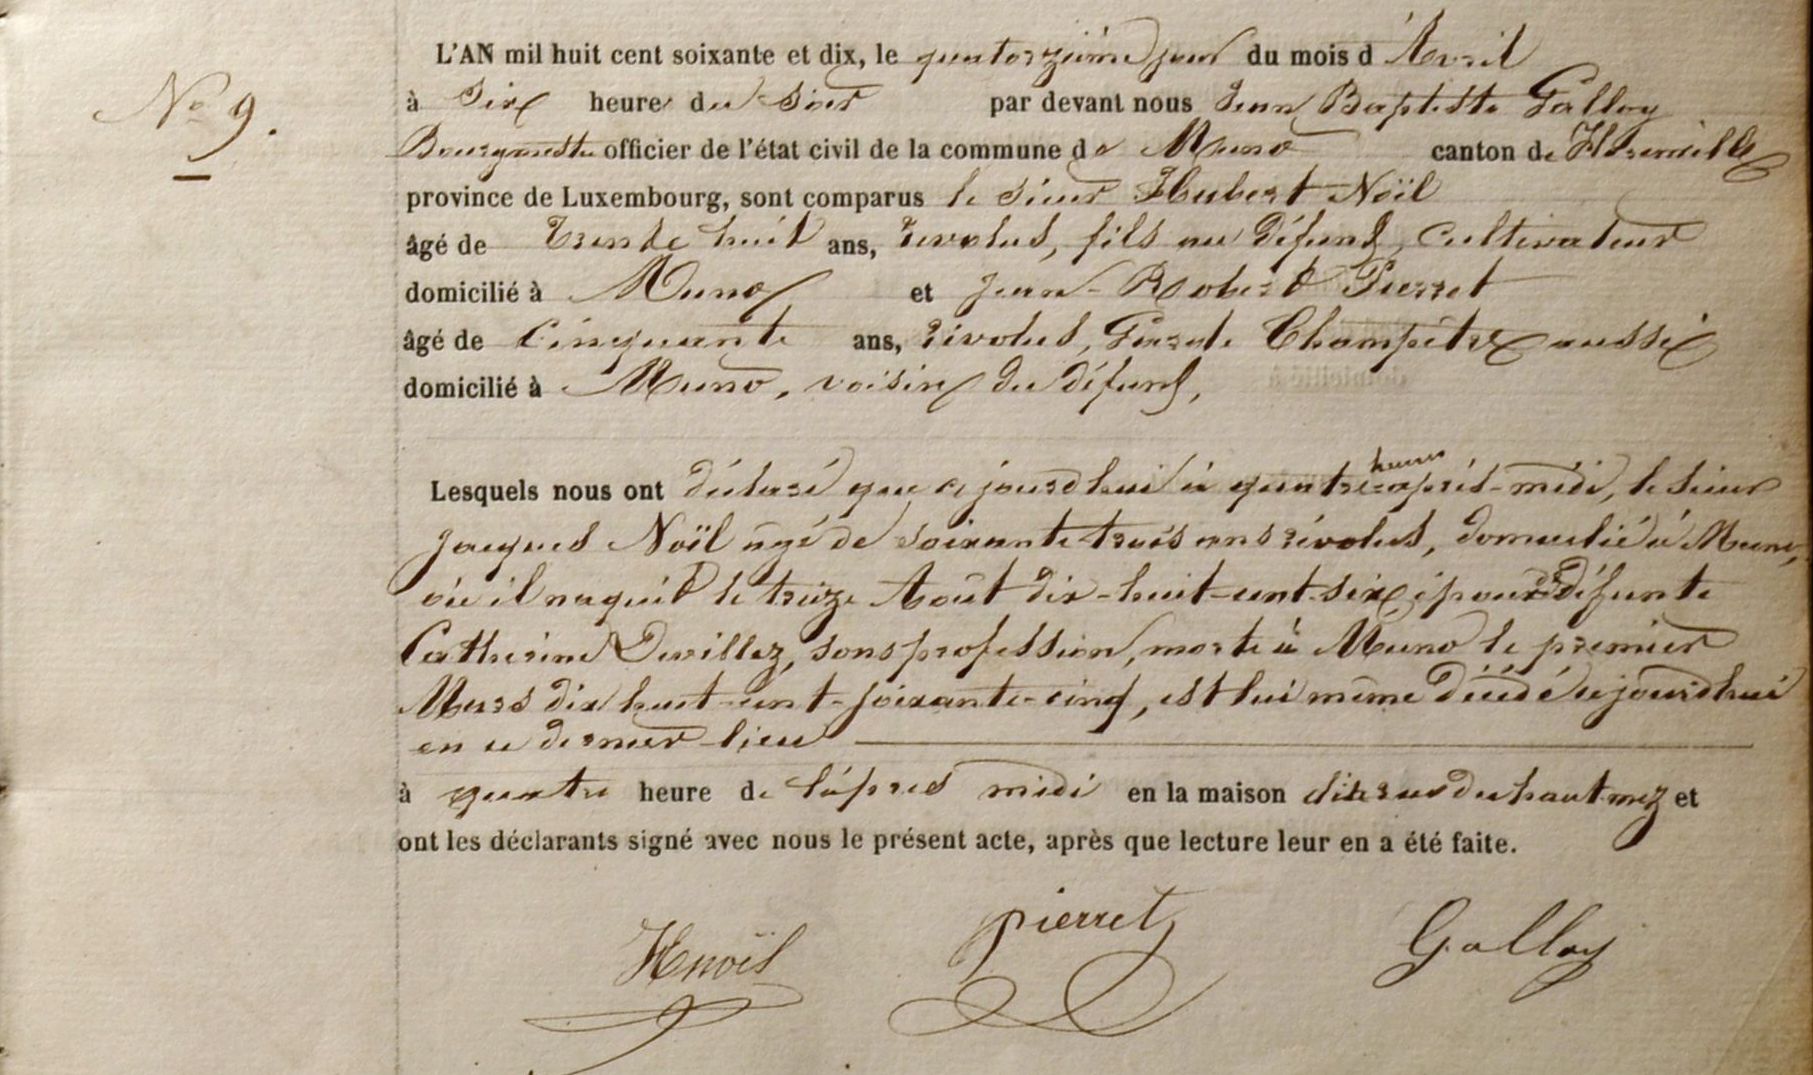 L'AN mil huit cent soixante et dix, le quatorzième jour du mois d'Avril
N° 9.
à Six heures du Soir par devant nous Jean Baptiste Galloy
Bourgmestre officier de l'état civil de la commune de Muno canton de Florenville
province de Luxembourg, sont comparus le sieur Hubert Noël
âgé de Trente huit ans, révolus, fils au défunt, Cultivateur
domicilié à Muno et Jean-Robert Pierret
âgé de Cinquante ans, révolus, Garde Champêtre aussi
domicilié à Muno, voisin du défunt,
heures
Lesquels nous ont déclaré que cejourd'hui à quatre après-midi, le sieur
Jacques Noël agé de soixante trois ans révolus, domicilié à Muno,
où il naquit le treize Août dix-huit-cent-six, époux de défunte
Catherine Devillez, sans profession, morte à Muno le premier
Mars dix huit-cent-soixante-cinq, est lui même décédé cejourd'hui
en ce dernier lieu
à quatre heure de l'après midi en la maison dite rue du haut mez et
ont les déclarants signé avec nous le présent acte, après que lecture leur en a été faite.
HNoël pierret Galloy